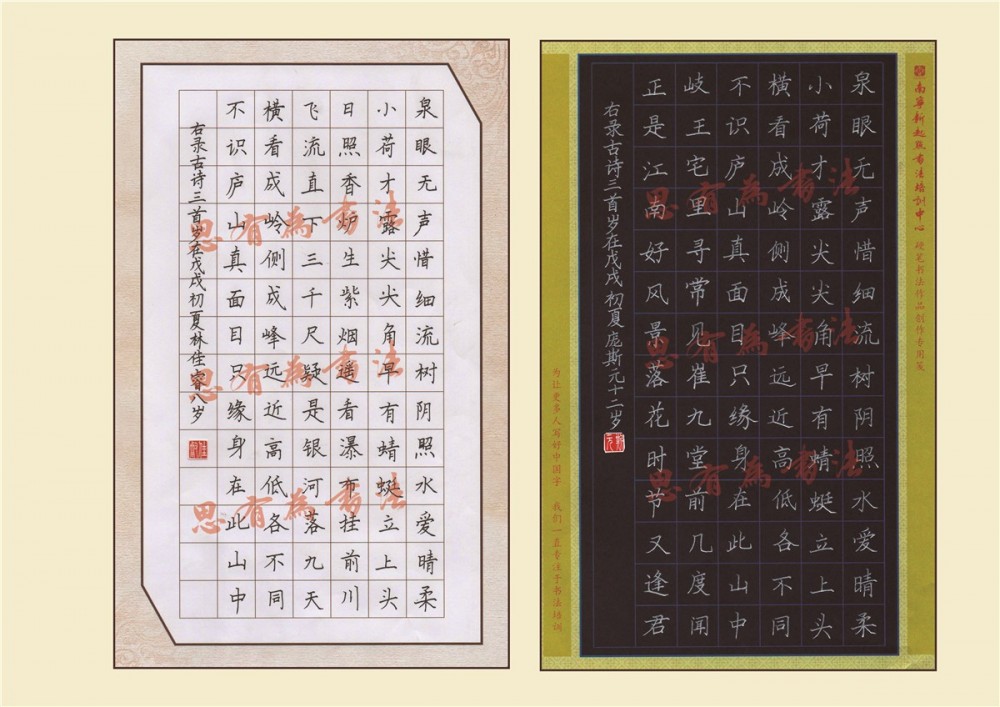 泉眼无声惜细流树阴照水爱晴柔
小荷才露尖尖角早有蜻蜓立上头
日照香炉生紫烟遥看瀑布挂前川
飞流直下三千尺疑是银河落九天
横看成岭侧成峰远近高低各不同
不识庐山真面目只缘身在此山中
右录古诗三首岁在戊戌初夏林佳睿八岁
思有為书法
思有為书法
思有為书法
硬笔书法作品创作专用笺
泉眼无声惜细流树阴照水爱晴柔
小荷才露尖尖角早有蜻蜓立上头
横看成岭侧成峰远近高低各不同
不识庐山真面目只缘身在此山中
岐王宅里寻常见崔九堂前几度闻
正是江南好风景落花时节又逢君
右录古诗三首岁在戊戌初夏庞斯元十二岁
为让更多人写好中国字 我们一直专注于书法培训
思有為书法
思有為书法
思有為书法